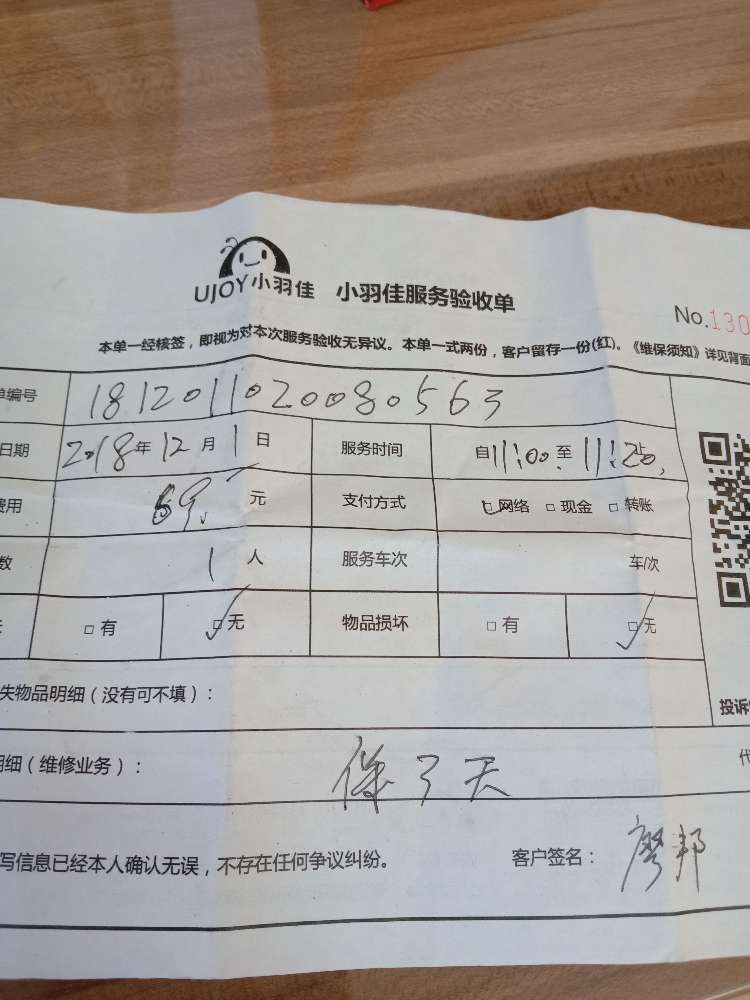 UJOY小羽佳 小羽佳服务验收单
No.130
本单一经核签，即视为对本次服务验收无异议。本单一式两份，客户留存一份(红)。《维保须知》详见背面
单编号 1812011020080563
日期 2018年12月1日 服务时间 自11:00至11:25
费用 69元 支付方式 □网络 □现金 □转账
数 1人 服务车次 车/次
□有 □无 物品损坏 □有 □无
失物品明细（没有可不填）：
投诉
明细（维修业务）： 保了天
代
写信息已经本人确认无误，不存在任何争议纠纷。 客户签名： 廖邦